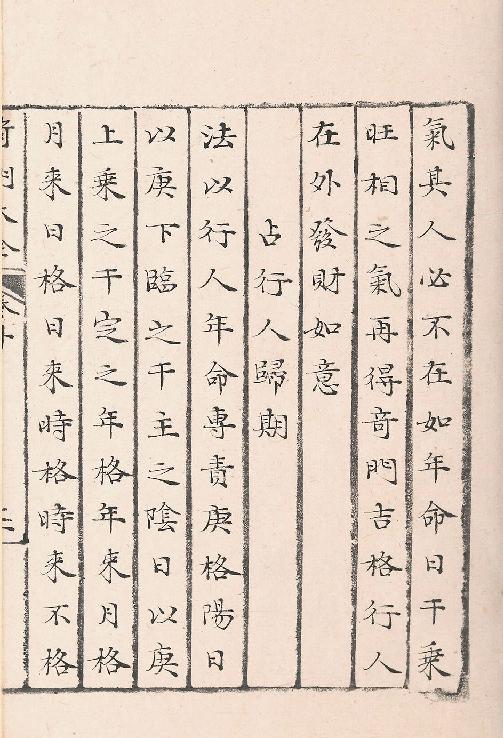 氣其人必不在如年命日干乗
旺相之氣再得竒門吉格行人
在外發財如意
占行人歸期
法以行人年命專責庚格陽日
以庚下臨之干主之隂日以庚
上乗之干定之年格年來月格
月来日格日来時格時来不格